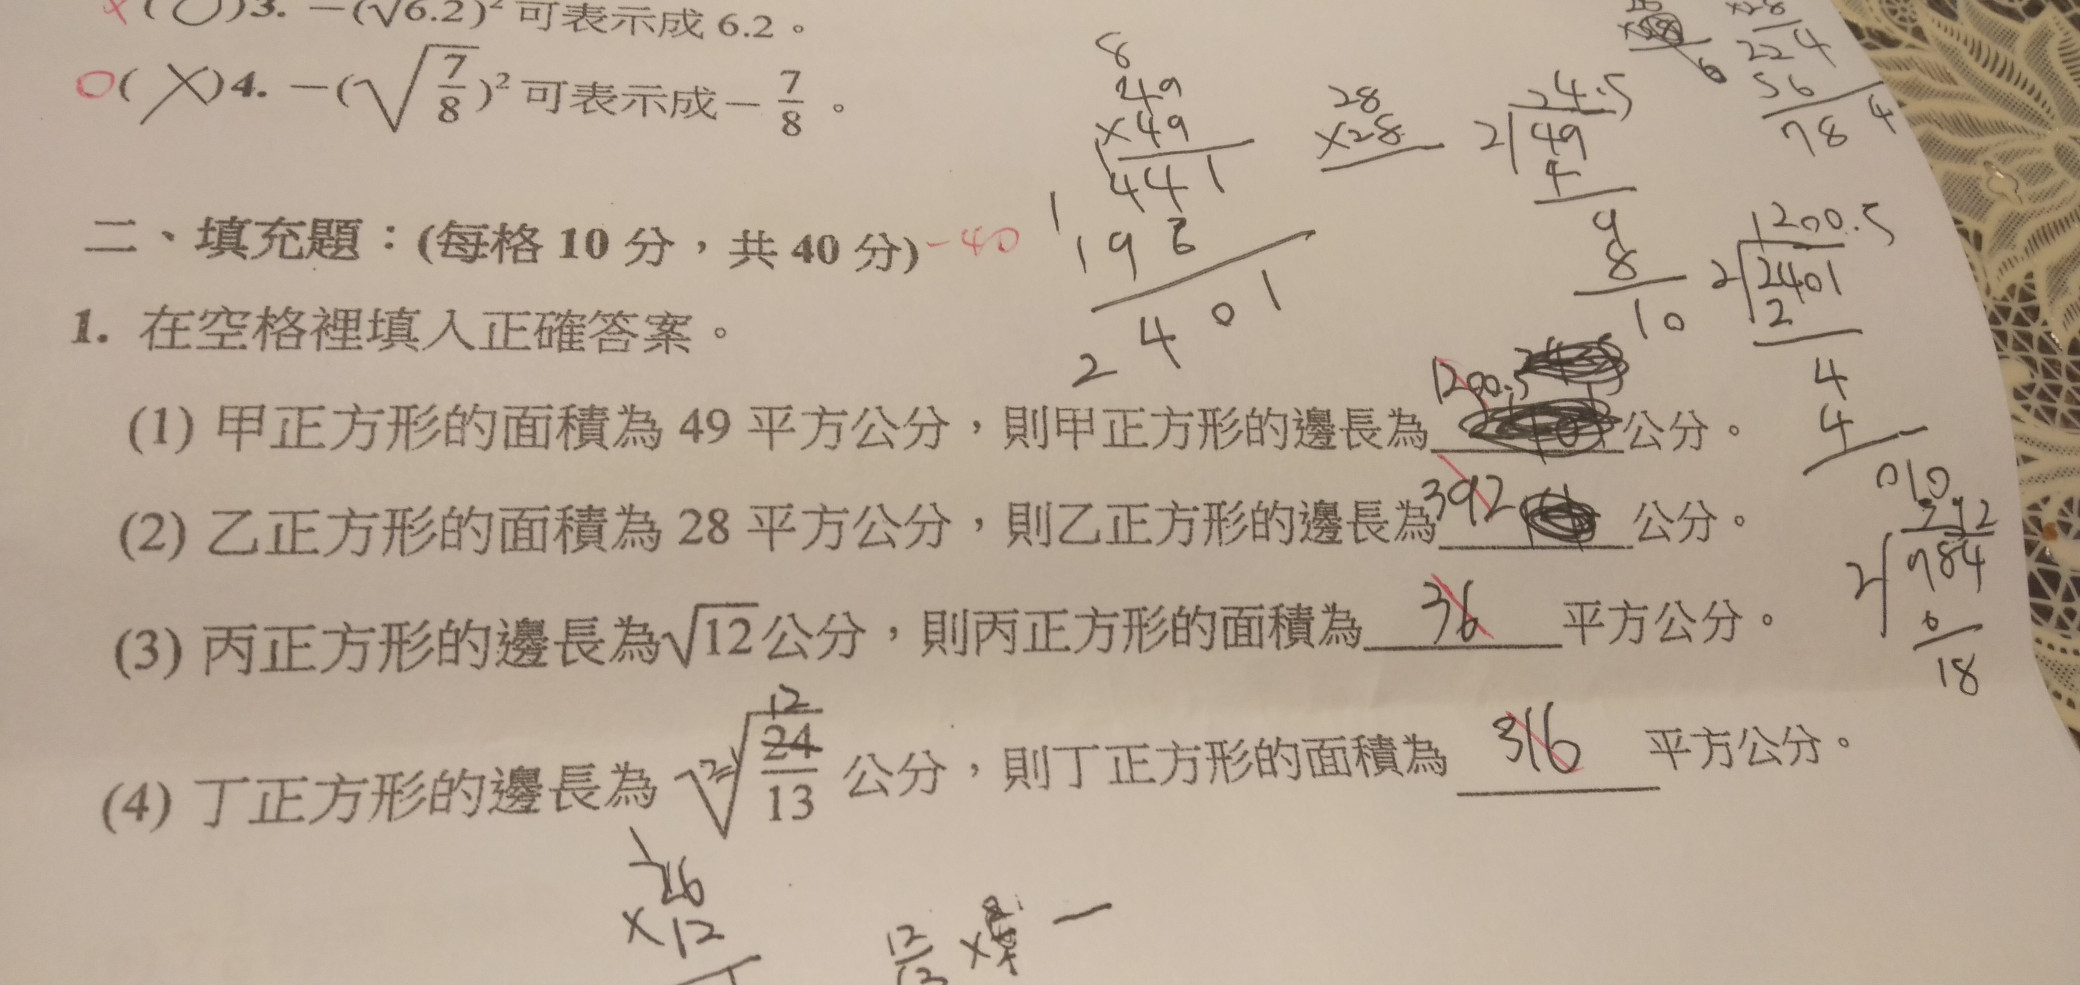 ( ○ )3. −(√6.2)² 可表示成 6.2。
○( ╳ )4. −(√7/8)² 可表示成 − 7/8。
8
49
×49
441
1 196
2401
28
×28
24.5
2)49
4
9
8
10
×28
224
56
784
1200.5
2)2401
2
4
4
010
二、填充題：(每格 10 分，共 40 分) -40
1. 在空格裡填入正確答案。
(1) 甲正方形的面積為 49 平方公分，則甲正方形的邊長為 1200.5 公分。
(2) 乙正方形的面積為 28 平方公分，則乙正方形的邊長為 392 公分。
392
2)784
6
18
(3) 丙正方形的邊長為√12公分，則丙正方形的面積為 36 平方公分。
12
(4) 丁正方形的邊長為 √24/13 公分，則丁正方形的面積為 316 平方公分。
26
×12
12/13 ×